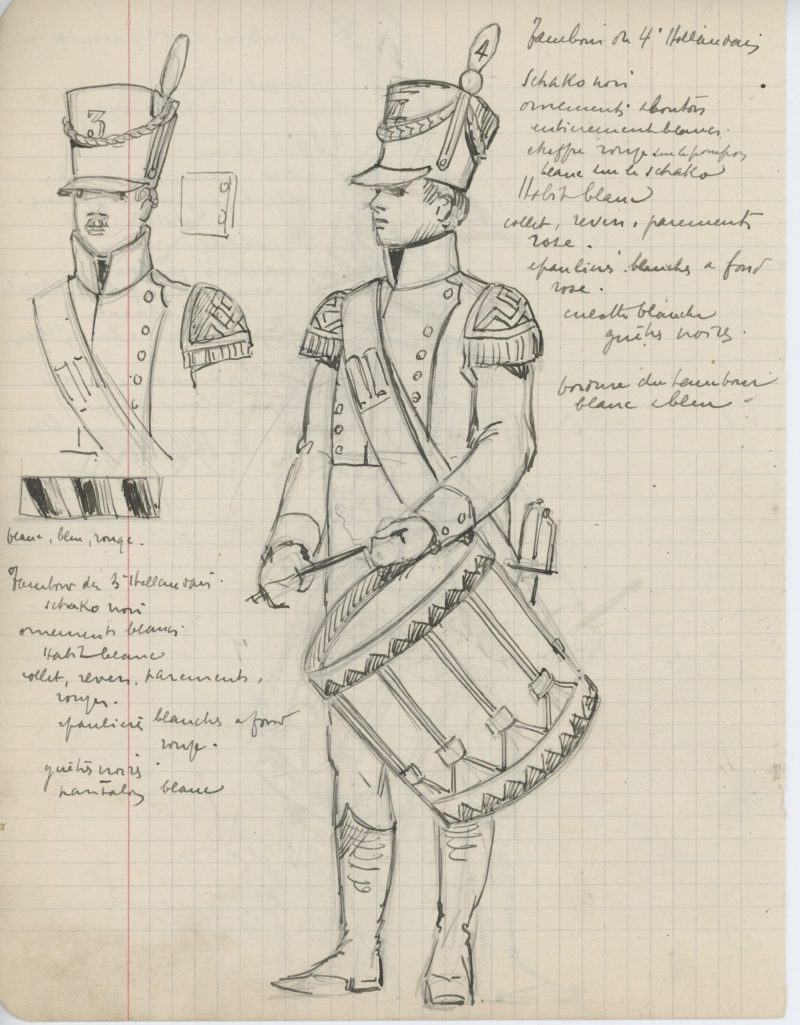 Tambour du 4e Hollandais
Schako noir
ornements & boutons
entièrement blancs.
chiffre rouge sur le pompon
blanc sur le schako
Habit blanc
collet, revers, parements
rose.
epaulières blanches a fond
rose.
culotte blanche
guêtres noires.
bordure du tambour
blanc & bleu
4
3
blanc, bleu, rouge.
Tambour du 3e Hollandais.
schako noir
ornements blancs
Habit blanc
collet, revers, parements,
rouges.
epaulières blanches a fond
rouge.
guêtres noires
pantalon blanc